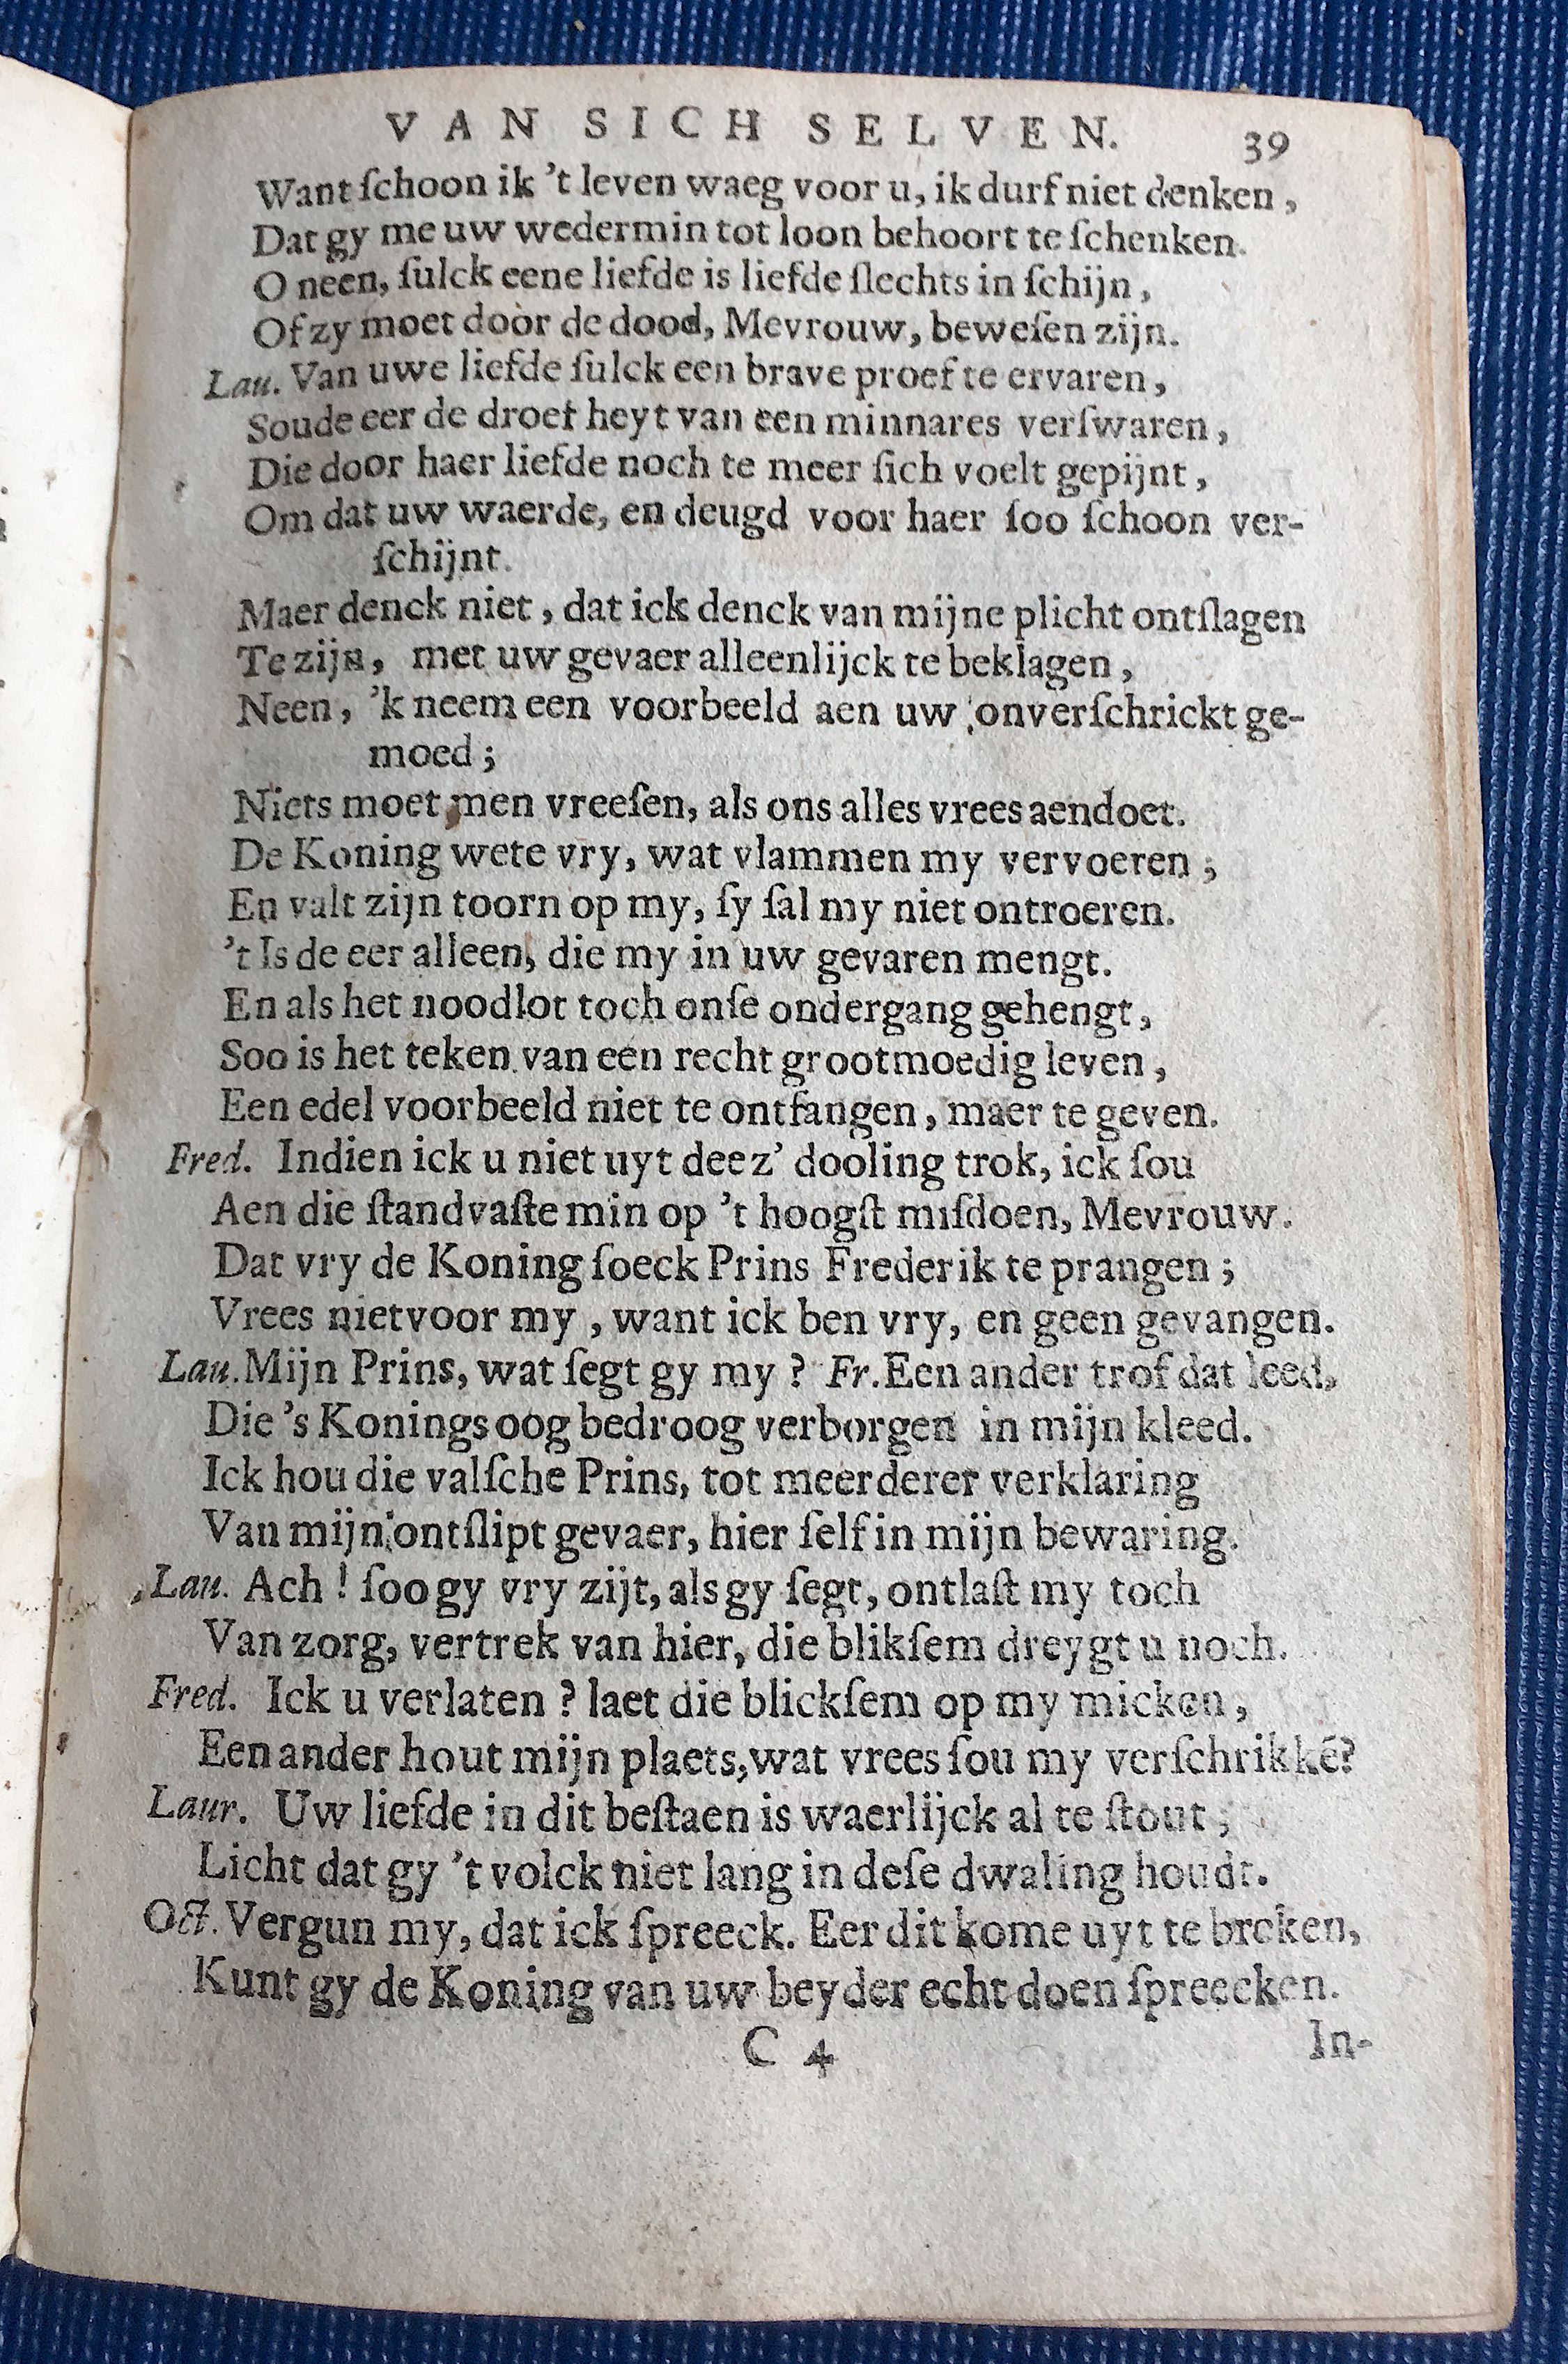 VAN SICH SELVEN. 39
Want ſchoon ik 't leven waeg voor u, ik durf niet denken,
Dat gy me uw wedermin tot loon behoort te ſchenken.
O neen, ſulck eene liefde is liefde ſlechts in ſchijn,
Of zy moet door de dood, Mevrouw, beweſen zijn.
Lau. Van uwe liefde ſulck een brave proef te ervaren,
Soude eer de droef heyt van een minnares verſwaren,
Die door haer liefde noch te meer ſich voelt gepijnt,
Om dat uw waerde, en deugd voor haer ſoo ſchoon ver-
ſchijnt.
Maer denck niet, dat ick denck van mijne plicht ontſlagen
Te zijn, met uw gevaer alleenlijck te beklagen,
Neen, 'k neem een voorbeeld aen uw onverſchrickt ge-
moed;
Niets moet men vreeſen, als ons alles vrees aendoet.
De Koning wete vry, wat vlammen my vervoeren;
En valt zijn toorn op my, ſy ſal my niet ontroeren.
't Is de eer alleen, die my in uw gevaren mengt.
En als het noodlot toch onſe ondergang gehengt,
Soo is het teken van een recht grootmoedig leven,
Een edel voorbeeld niet te ontfangen, maer te geven.
Fred. Indien ick u niet uyt deez' dooling trok, ick ſou
Aen die ſtandvaſte min op 't hoogſt miſdoen, Mevrouw.
Dat vry de Koning ſoeck Prins Frederik te prangen;
Vrees niet voor my, want ick ben vry, en geen gevangen.
Lau. Mijn Prins, wat ſegt gy my? Fr. Een ander trof dat leed,
Die 's Konings oog bedroog verborgen in mijn kleed.
Ick hou die valſche Prins, tot meerderer verklaring
Van mijn ontſlipt gevaer, hier ſelf in mijn bewaring.
Lau. Ach! ſoo gy vry zijt, als gy ſegt, ontlaſt my toch
Van zorg, vertrek van hier, die blikſem dreygt u noch.
Fred. Ick u verlaten? laet die blickſem op my micken,
Een ander hout mijn plaets, wat vrees ſou my verſchrikkē?
Laur. Uw liefde in dit beſtaen is waerlijck al te ſtout;
Licht dat gy 't volck niet lang in deſe dwaling houdt.
Oct. Vergun my, dat ick ſpreeck. Eer dit kome uyt te breken,
Kunt gy de Koning van uw beyder echt doen ſpreecken.
C 4 In-